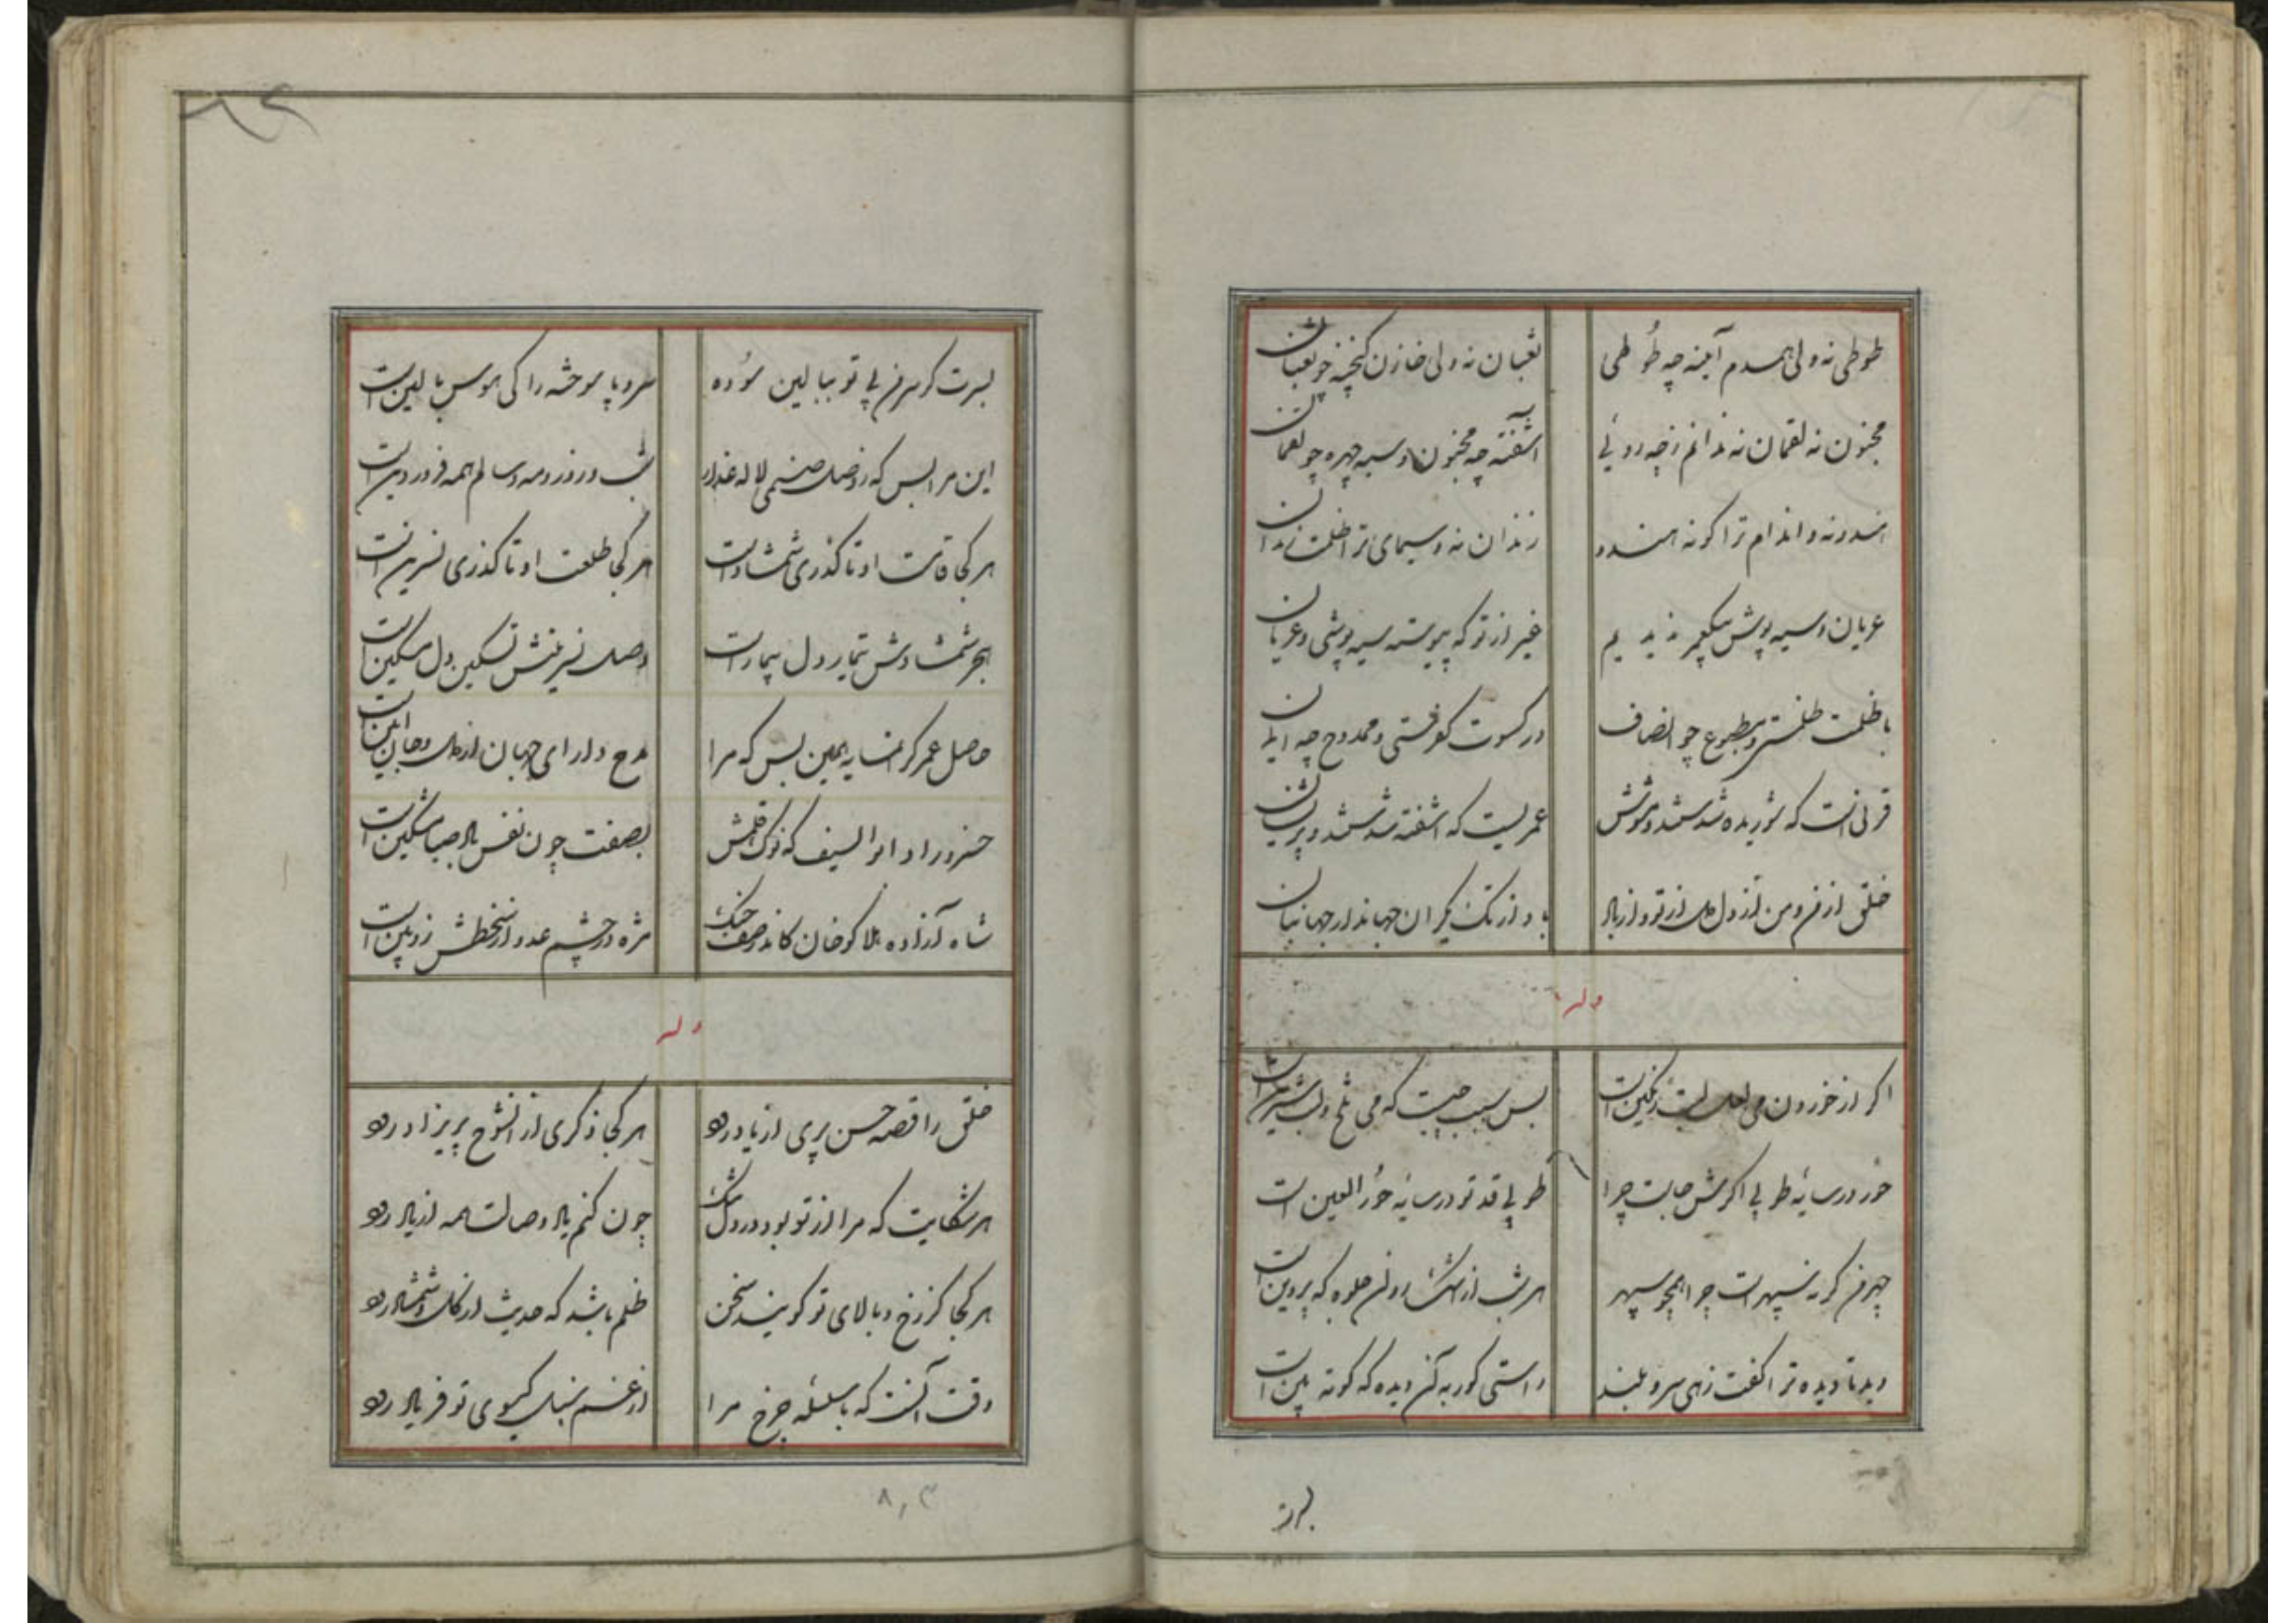 طوطی نه ولی همدم آینه چه طُوطی
ثعبان نه ولی خازن گنجینه چو ثعبان
مجنون نه لقمان نه ندانم ز چه روئی
آشفته چه مجنون و سیه چهره چو لقمان
هندو نه و اندام ترا گونه هندو
زندان نه و سیمای ترا ظلمت زندان
عریان و سیه پوش بیکجر ندیدیم
غیر از تو که پیوسته سیه پوشی و عریان
با ظلمت ظلمستی و مطبوع چو انصاف
در کسوت کفرستی و ممدوح چه ایمان
قرنی است که شوریده شدستند ز هوشش
عمریست که آشفته شدستند و پریشان
خلقی از من و من از دل و دل از تو و تو از باد
باد از تک یکران جهاندار جهانبان
وله
اگر از خوردن می لعل لبت رنگین است
پس سبب چیست که می تلخ و لبت شیرین است
حور در سایه طوبی اگرش جاست چرا
طوبی قد تو در سایه حُور العین است
چهر من گر نه سپهر است چرا همچو سپهر
هر شب از اشک در او جلوه گه پروین است
دید تا دیده ترا گفت زهی سرو بلند
راستی کور به آن دیده که کوته بین است
بسرت گر سر من بی تو ببالین سُوده
سر و پا سوخته را کی هوس بالین است
این مرا بس که ز وصل صنمی لاله عذار
شب و روز و مه و سالم همه فروردین است
هر کجا قامت او تا گذری شمشاد است
هر کجا طلعت او تا گذری نسرین است
هجر شمشادش تیمار دل بیمار است
وصل نسرینش تسکین دل مسکین است
حاصل عمر گرانمایه همین بس که مرا
مدح دارای جهان از دل و جان آیین است
خسرو راد ابوالسیف که نوک قلمش
بصفت چون نفس باد صبا مشکین است
شاه آزاده هلاکو خان کاندر صف جنگ
مژه در چشم عدو از سخطش زوبین است
وله
خلق را قصه حسن پری از یاد رود
هر کجا ذکری از آنشوخ پریزاد رود
هر شکایت که مرا از تو بود در دل تنگ
چون کنم یاد وصالت همه از یاد رود
هر کجا کز رخ و بالای تو گویند سخن
ظلم باشد که حدیث از گل و شمشاد رود
وقت آنست که با سلسله چرخ مرا
از غم سنبل گیسوی تو فریاد رود
بسرت